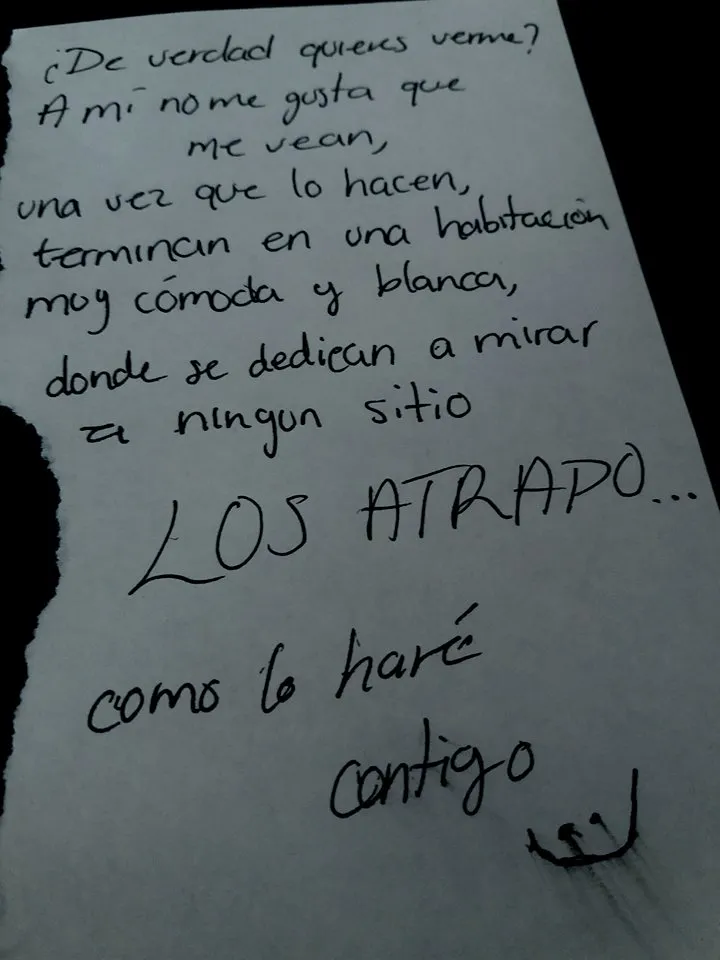 ¿De verdad quieres verme?
A mí no me gusta que
me vean,
una vez que lo hacen,
terminan en una habitación
muy cómoda y blanca,
donde se dedican a mirar
a ningun sitio
LOS ATRAPO...
como lo haré
contigo